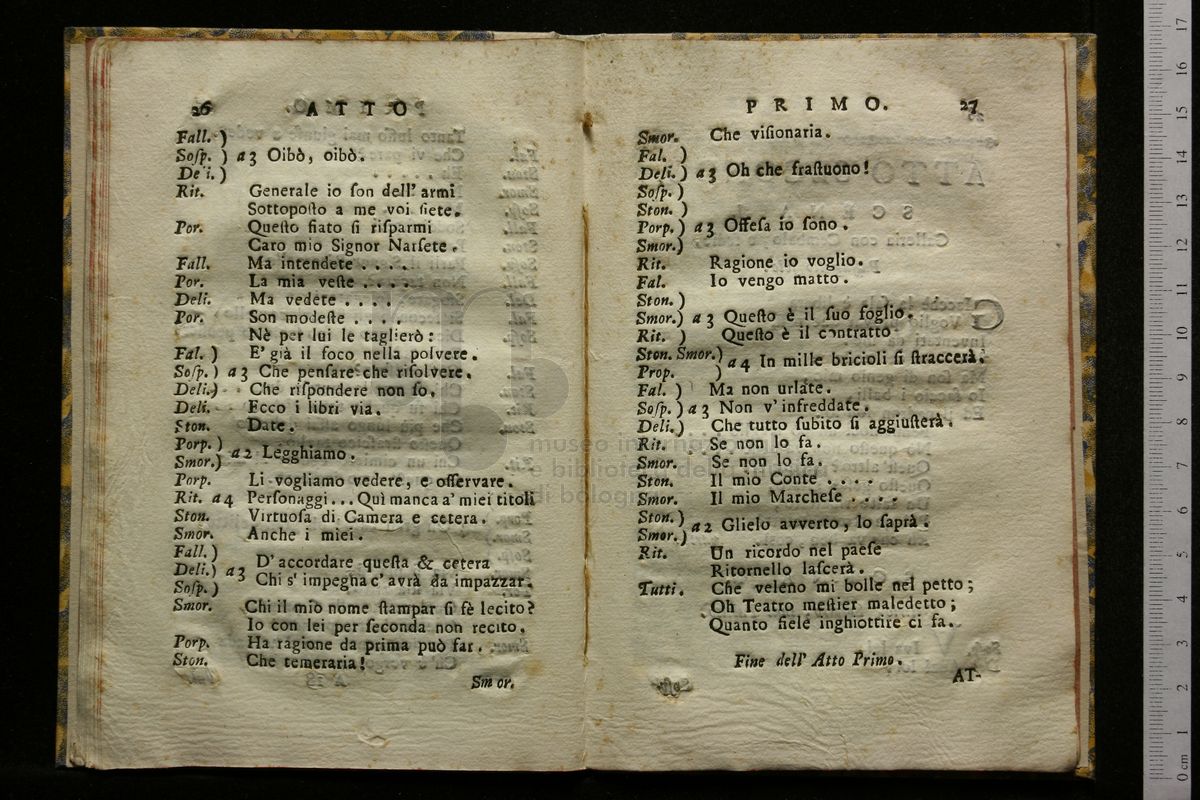 26 ATTO
Fall. )
Soſp. ) a 3 Oibò, oibò.
De'i. )
Rit. Generale io ſon dell' armi
Sottopoſto a me voi ſiete.
Por. Queſto fiato ſi riſparmi
Caro mio Signor Narſete.
Fall. Ma intendete . . . .
Por. La mia veſte . . . .
Deli. Ma vedete . . . .
Por. Son modeſte . . . .
Nè per lui le taglierò:
Fal. ) E' già il foco nella polvere.
Soſp. ) a 3 Che penſare che riſolvere.
Deli.) Che riſpondere non ſo.
Deli. Ecco i libri via.
Ston. Date.
Porp. )
Smor.) a 2 Legghiamo.
Porp. Li vogliamo vedere, e oſſervare.
Rit. a 4 Perſonaggi... Quì manca a' miei titoli
Ston. Virtuoſa di Camera e cetera.
Smor. Anche i miei.
Fall. )
Deli.) a 3 D' accordare queſta & cetera
Soſp. ) Chi s' impegna c' avrà da impazzar.
Smor. Chi il mio nome ſtampar ſi fè lecito?
Io con lei per ſeconda non recito.
Porp. Ha ragione da prima può far.
Ston. Che temeraria!
Smor.
PRIMO. 27
Smor. Che viſionaria.
Fal. )
Deli.) a 3 Oh che fraſtuono!
Soſp. )
Ston. )
Porp. ) a 3 Offeſa io ſono.
Smor.)
Rit. Ragione io voglio.
Fal. Io vengo matto.
Ston. )
Smor.) a 3 Queſto è il ſuo foglio.
Rit. ) Queſto è il contratto
Ston. Smor.) a 4 In mille bricioli ſi ſtraccerà.
Prop. )
Fal. ) Ma non urlate.
Soſp. ) a 3 Non v' infreddate.
Deli. ) Che tutto ſubito ſi aggiuſterà.
Rit. Se non lo fa.
Smor. Se non lo fa.
Ston. Il mio Conte . . . .
Smor. Il mio Marcheſe . . . .
Ston. )
Smor.) a 2 Glielo avverto, lo ſaprà.
Rit. Un ricordo nel paeſe
Ritornello laſcerà.
Tutti. Che veleno mi bolle nel petto;
Oh Teatro meſtier maledetto;
Quanto fiele inghiottire ci fa.
Fine dell' Atto Primo.
AT-
0 cm 1 2 3 4 5 6 7 8 9 10 11 12 13 14 15 16 17